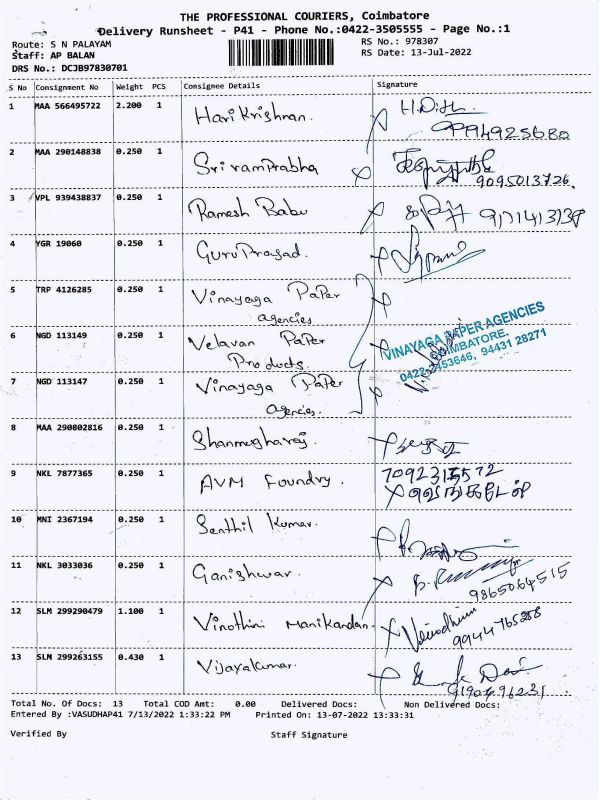 THE PROFESSIONAL COURIERS, Coimbatore
Delivery Runsheet - P41 - Phone No.:0422-3505555 - Page No.:1
Route: S N PALAYAM
RS No.: 978307
Staff: AP BALAN
RS Date: 13-Jul-2022
DRS No.: DCJB97830701
S No Consignment No Weight PCS Consignee Details Signature
1 MAA 566495722 2.200 1 Hari Krishnan.
9994925680
2 MAA 290148838 0.250 1 Sri ramprabha
9095013726.
3 VPL 939438837 0.250 1 Ramesh Babu
4 YGR 19060 0.250 1 Guru Prasad.
5 TRP 4126285 0.250 1 Vinayaga Paper
agencies
6 NGD 113149 0.250 1 Velavan Paper
Products
VINAYAGA PAPER AGENCIES
COIMBATORE.
0422-2453646, 94431 28271
7 NGD 113147 0.250 1 Vinayaga Paper
agencies.
8 MAA 290802816 0.250 1 Shanmugharaj.
9 NKL 7877365 0.250 1 AVM Foundry.
வெங்கடேஷ்
10 MNI 2367194 0.250 1 Senthil Kumar.
11 NKL 3033036 0.250 1 Ganishwar.
9865064515
12 SLM 299290479 1.100 1 Vinothini Manikandan.
Vinodhini
13 SLM 299263155 0.430 1 Vijayakumar.
Total No. Of Docs: 13 Total COD Amt: 0.00 Delivered Docs: Non Delivered Docs:
Entered By :VASUDHAP41 7/13/2022 1:33:22 PM Printed On: 13-07-2022 13:33:31
Verified By Staff Signature